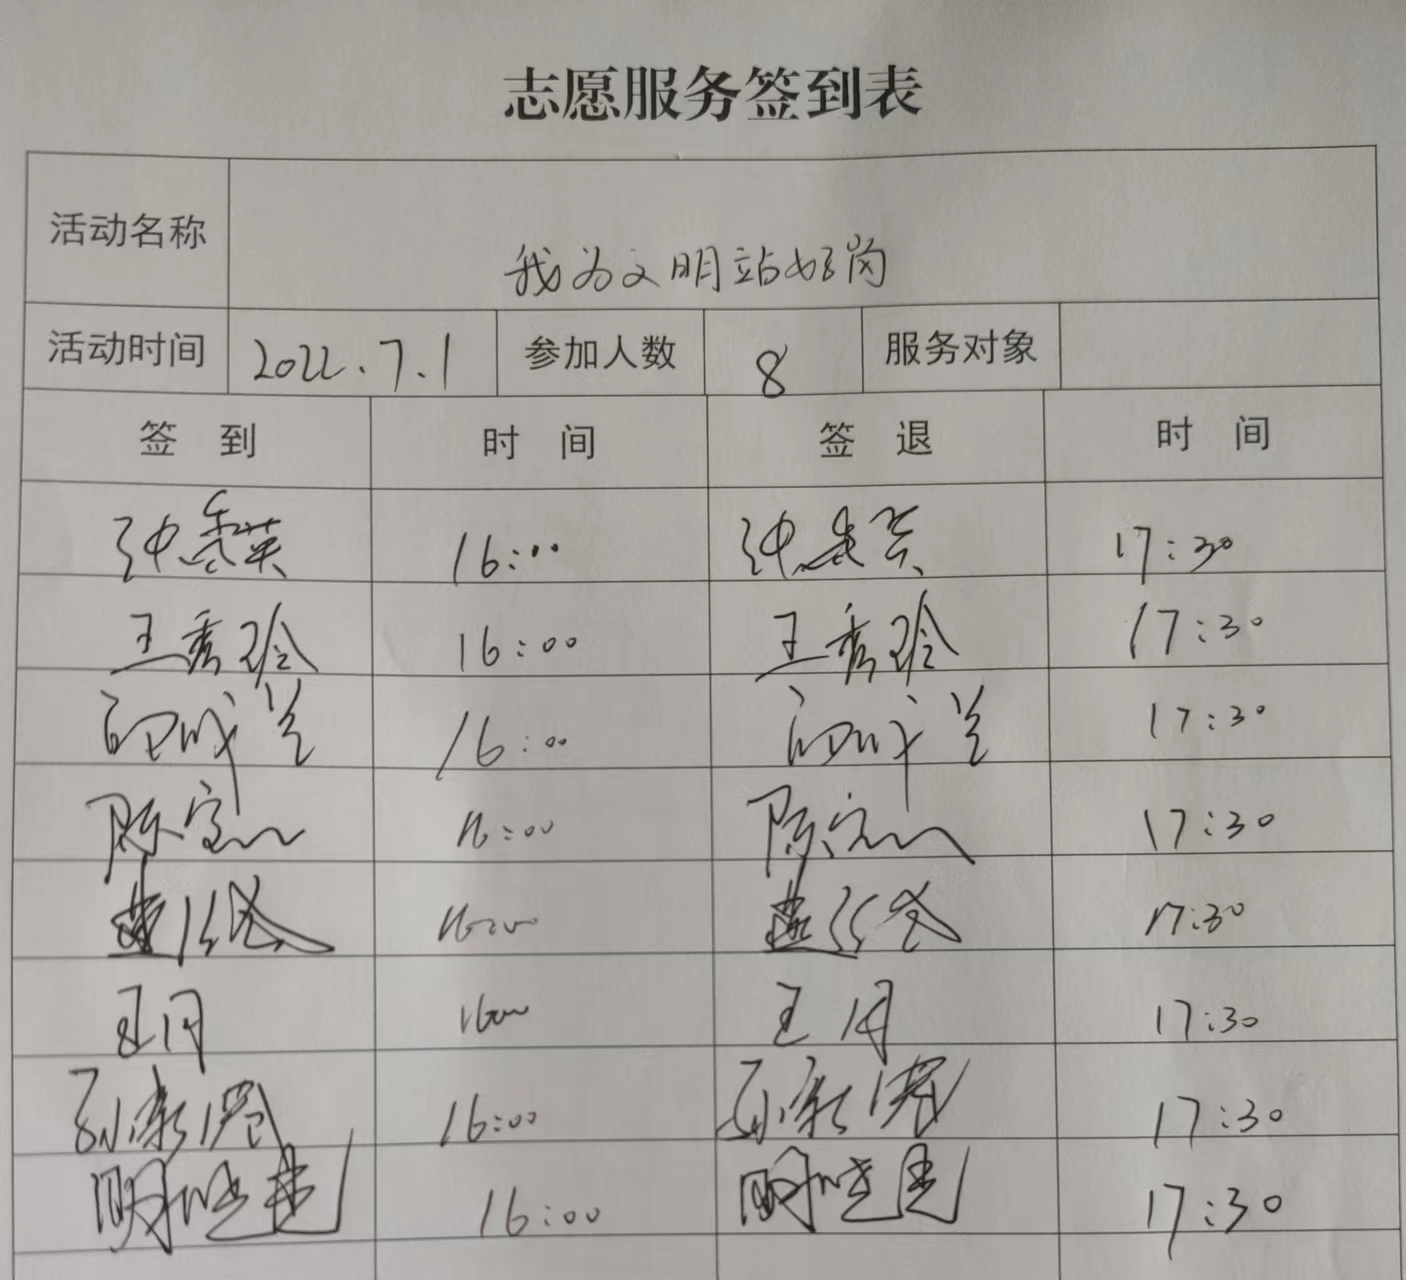 志愿服务签到表
活动名称 我为文明站好岗
活动时间 2022.7.1 参加人数 8 服务对象
签 到 时 间 签 退 时 间
16:00 17:30
王秀玲 16:00 王秀玲 17:30
16:00 17:30
陈 16:00 陈 17:30
16:00 17:30
王月 16:00 王月 17:30
孙 16:00 孙 17:30
明 16:00 明 17:30